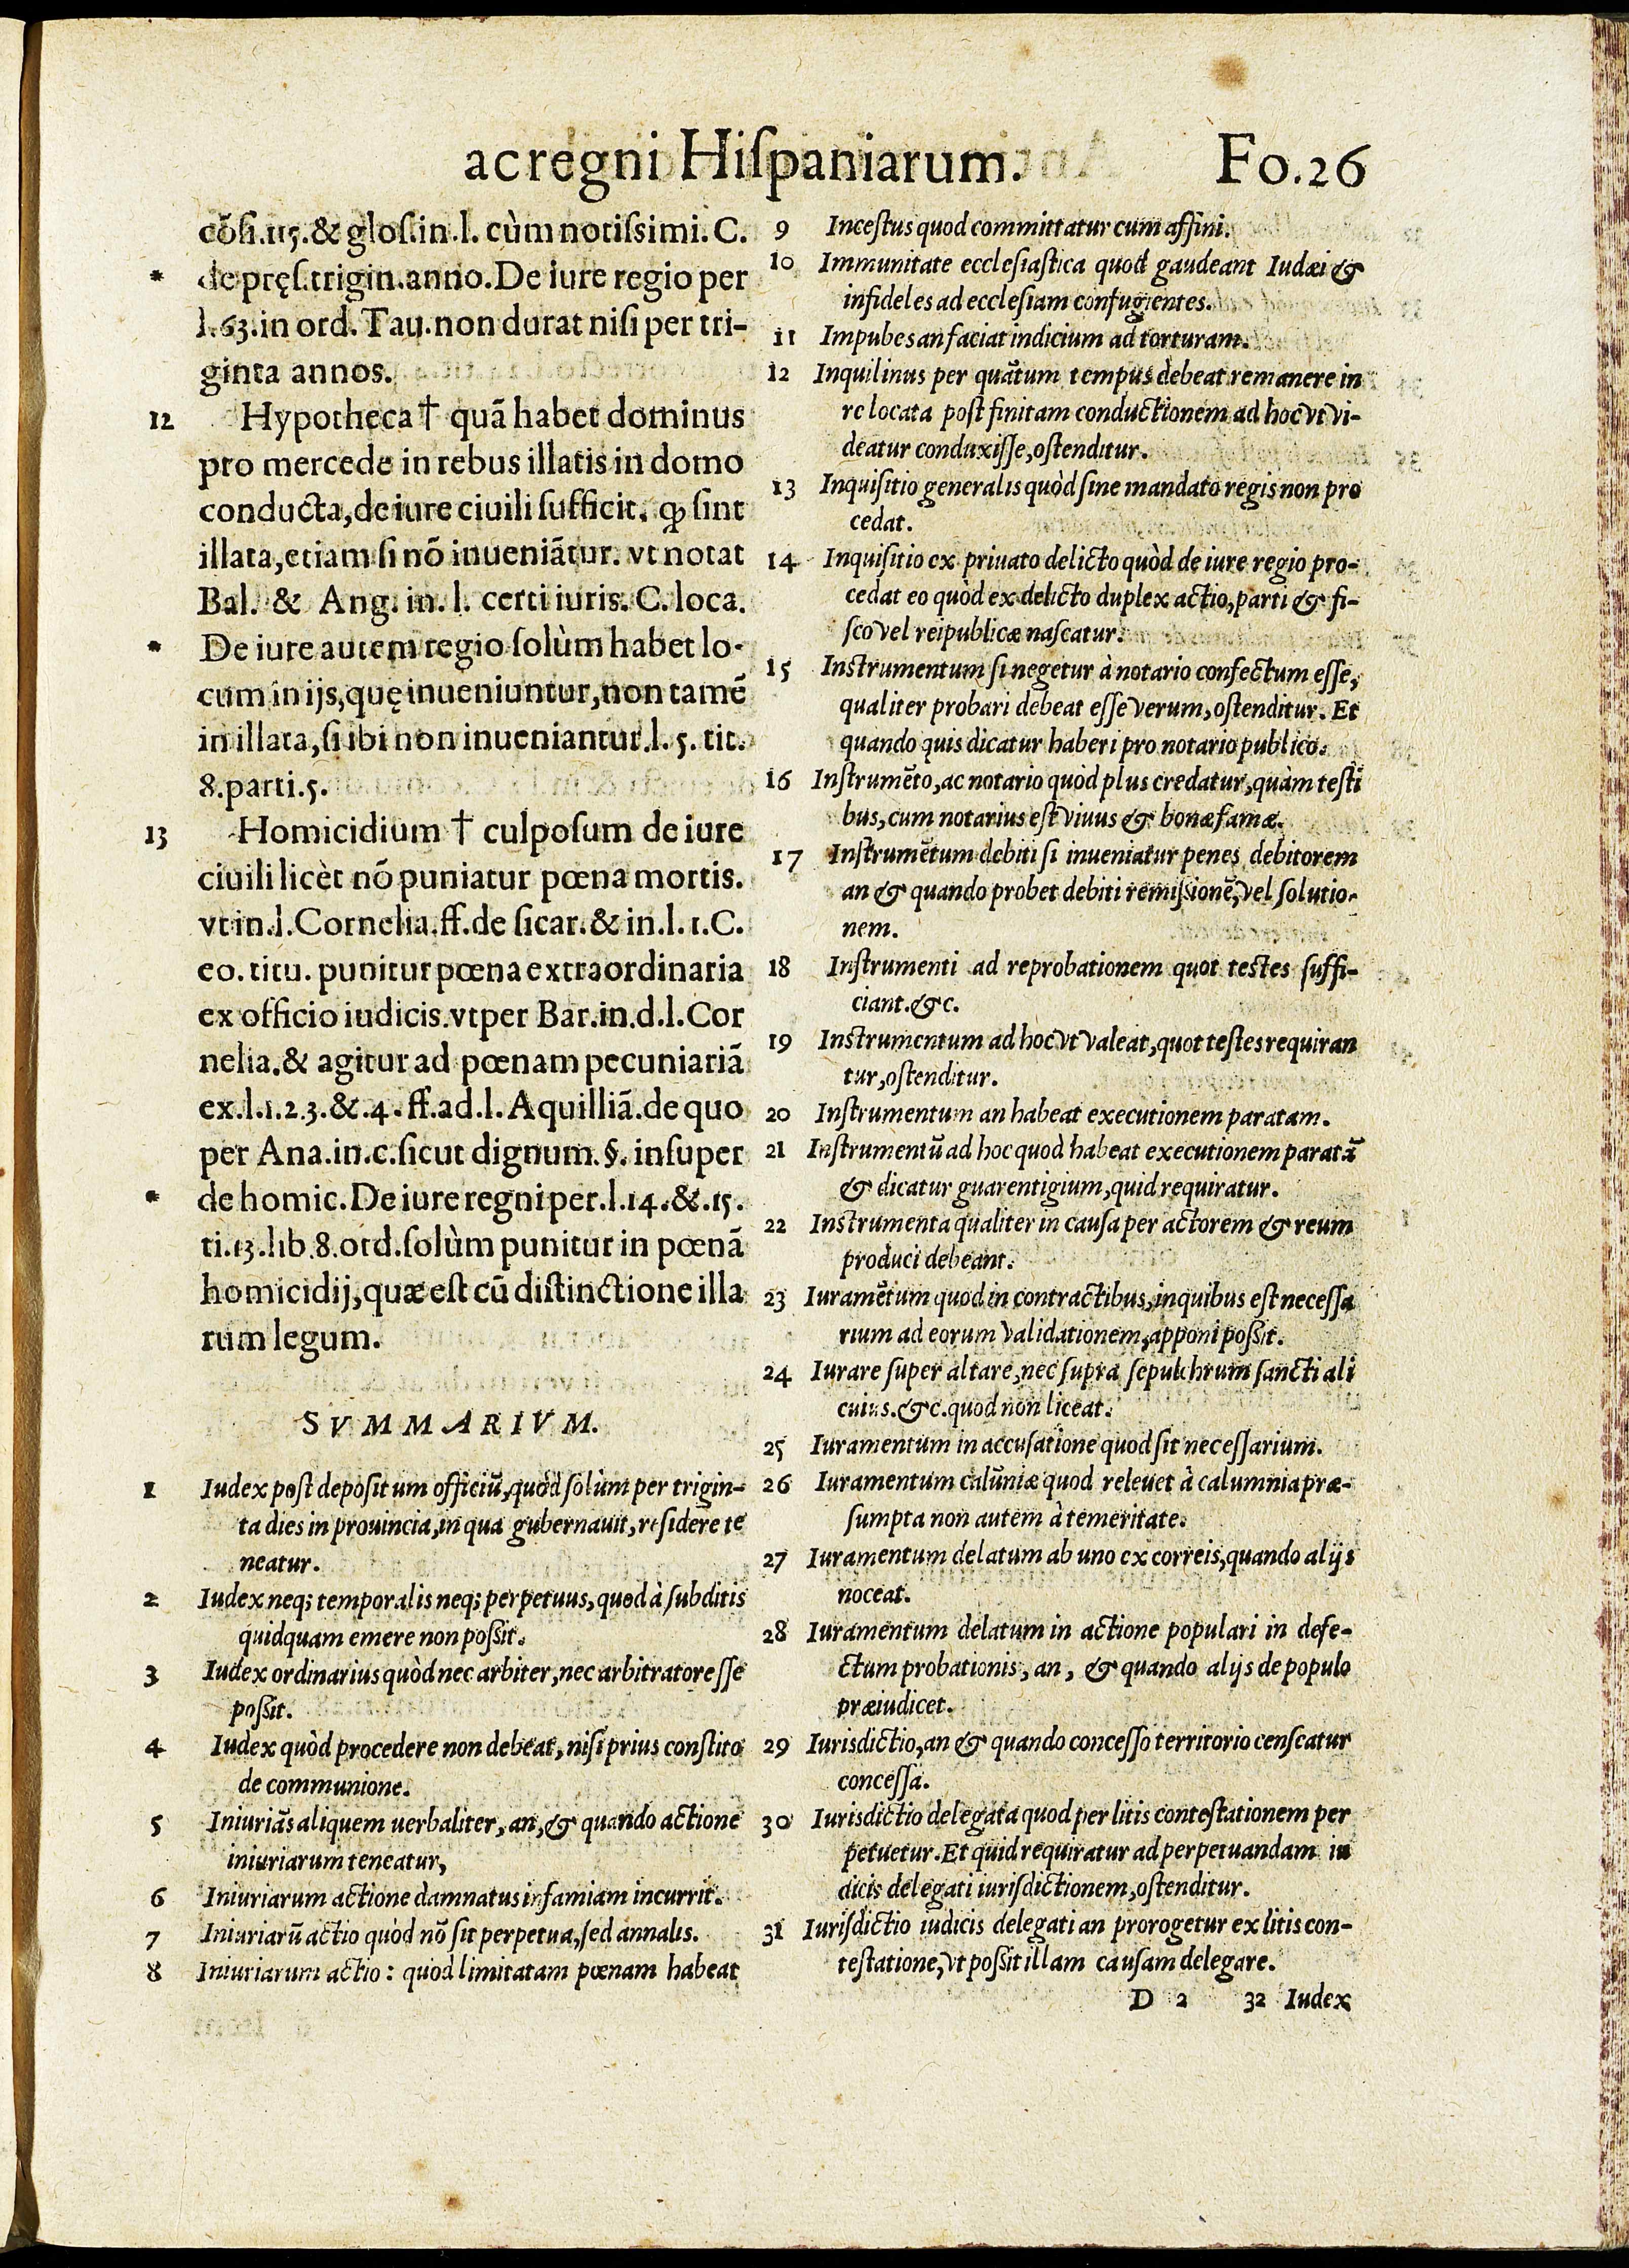 ac regni Hiſpaniarum. Fo.26
cõſi.115.& gloſ.in.l. cùm notiſsimi. C.
* de pręſ.trigin.anno.De iure regio per
l.63.in ord. Tau.non durat niſi per tri-
ginta annos.
12 Hypotheca † quã habet dominus
pro mercede in rebus illatis in domo
conducta,de iure ciuili ſufficit, ꝙ ſint
illata,etiam ſi nõ inueniãtur. vt notat
Bal. & Ang. in. l. certi iuris. C. loca.
* De iure autem regio ſolùm habet lo-
cum in ijs,quę inueniuntur,non tamẽ
in illata,ſi ibi non inueniantur.l. 5. tit.
8.parti.5.
13 Homicidium † culpoſum de iure
ciuili licèt nõ puniatur pœna mortis.
vt in.l.Cornelia.ff.de ſicar.& in.l.1.C.
eo. titu. punitur pœna extraordinaria
ex officio iudicis.vt per Bar.in.d.l.Cor
nelia.& agitur ad pœnam pecuniariã
ex.l.1.2.3.&.4.ff.ad.l.Aquilliã.de quo
per Ana.in.c.ſicut dignum.§. inſuper
* de homic.De iure regni per.l.14.&.15.
ti.13.lib.8.ord.ſolùm punitur in pœnã
homicidij,quæ eſt cũ diſtinctione illa
rum legum.
SVMMARIVM.
1 Iudex poſt depoſitum officiũ,quòd ſolùm per trigin-
ta dies in prouincia,in qua gubernauit,reſidere te
neatur.
2 Iudex neq; temporalis neq; perpetuus,quod à ſubditis
quidquam emere non poſsit.
3 Iudex ordinarius quòd nec arbiter,nec arbitrator eſſe
poſsit.
4 Iudex quòd procedere non debeat,niſi prius conſtito
de communione.
5 Iniuriãs aliquem uerbaliter,an,& quando actione
iniuriarum teneatur,
6 Iniuriarum actione damnatus infamiam incurrit.
7 Iniuriarũ actio quòd nõ ſit perpetua,ſed annalis.
8 Iniuriarum actio: quod limitatam pœnam habeat
9 Inceſtus quod committatur cum affini.
10 Immunitate eccleſiaſtica quod gaudeant Iudæi &
infideles ad eccleſiam confugientes.
11 Impubes an faciat indicium ad torturam.
12 Inquilinus per quãtum tempus debeat remanere in
re locata poſt finitam conductionem ad hoc vt vi-
deatur conduxiſſe,oſtenditur.
13 Inquiſitio generalis quòd ſine mandato regis non pro
cedat.
14 Inquiſitio ex priuato delicto quòd de iure regio pro-
cedat eo quòd ex delicto duplex actio,parti & fi-
ſco vel reipublicæ naſcatur.
15 Inſtrumentum ſi negetur à notario confectum eſſe,
qualiter probari debeat eſſe verum,oſtenditur. Et
quando quis dicatur haberi pro notario publico.
16 Inſtrumẽto,ac notario quòd plus credatur,quàm teſti
bus,cum notarius eſt viuus & bonæ famæ.
17 Inſtrumẽtum debiti ſi inueniatur penes debitorem
an & quando probet debiti remiſsionẽ,vel ſolutio-
nem.
18 Inſtrumenti ad reprobationem quot teſtes ſuffi-
ciant.&c.
19 Inſtrumentum ad hoc vt valeat,quot teſtes requiran
tur,oſtenditur.
20 Inſtrumentum an habeat executionem paratam.
21 Inſtrumentũ ad hoc quod habeat executionem paratã
& dicatur guarentigium,quid requiratur.
22 Inſtrumenta qualiter in cauſa per actorem & reum
produci debeant.
23 Iuramẽtum quod in contractibus,in quibus eſt neceſſa
rium ad eorum validationem,apponi poſsit.
24 Iurare ſuper altare,nec ſupra ſepulchrum ſancti ali
cuius.&c.quod non liceat.
25 Iuramentum in accuſatione quod ſit neceſſarium.
26 Iuramentum calũniæ quod releuet à calumnia præ-
ſumpta non autem à temeritate.
27 Iuramentum delatum ab uno ex correis,quando alijs
noceat.
28 Iuramentum delatum in actione populari in defe-
ctum probationis, an, & quando alijs de populo
præiudicet.
29 Iurisdictio,an & quando conceſſo territorio cenſeatur
conceſſa.
30 Iurisdictio delegata quod per litis conteſtationem per
petuetur.Et quid requiratur ad perpetuandam iu
dicis delegati iuriſdictionem,oſtenditur.
31 Iuriſdictio iudicis delegati an prorogetur ex litis con-
teſtatione,vt poſsit illam cauſam delegare.
D 2 32 Iudex